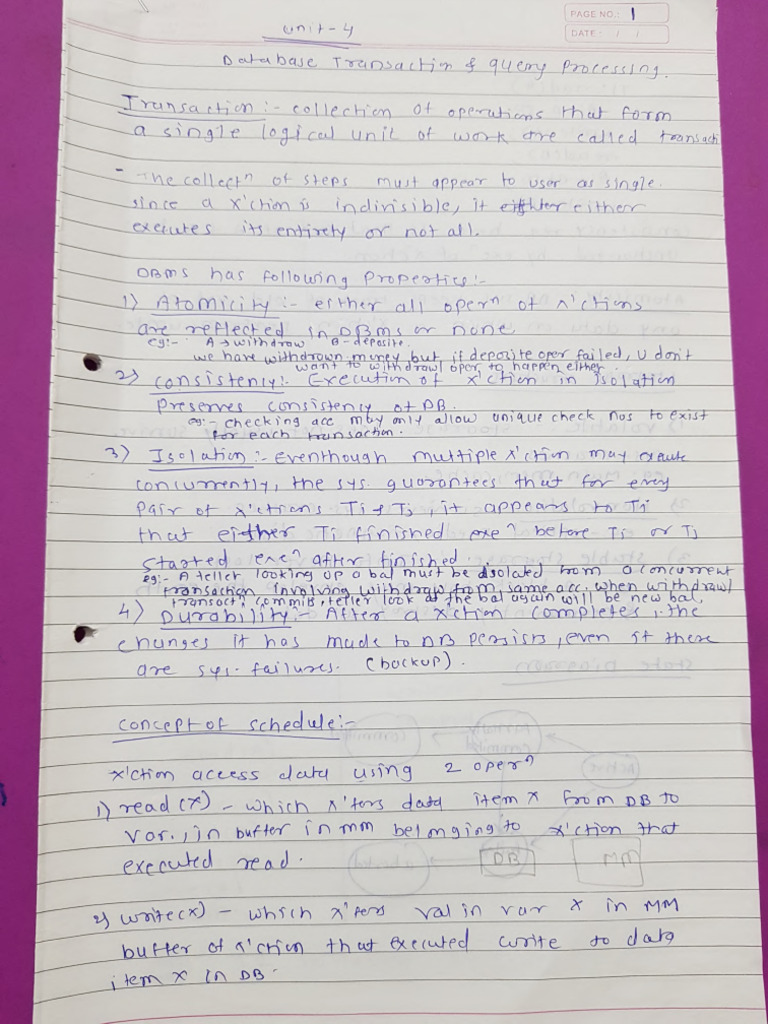 PAGE NO.: 1
DATE: / /
Unit-4
Database Transaction & query Processing.
Transaction :- collection of operations that form
a single logical unit of work are called transacti
- The collectⁿ of steps must appear to user as single.
since a x'ction is indivisible, it either
executes its entirety or not all.
DBMS has following Properties:-
1) Atomicity :- either all operⁿ of x'ctions
are reflected in DBMS or none.
eg:- A→withdraw B-deposite.
we have withdrawn money but if deposite oper failed, U don't
want to withdrawl oper to happen either.
2) Consistency:- Execution of x'ction in isolation
Preserves consistency of DB.
eg:- checking acc may only allow unique check nos to exist
for each transaction.
3) Isolation :- Eventhough multiple x'ction may execute
concurrently, the sys. guarantees that for every
pair of x'ctions Ti & Tj, it appears to Ti
that either Tj finished exeⁿ before Ti or Tj
started exeⁿ after finished.
eg:- A teller looking up a bal must be isolated from a concurrent
transaction involving withdraw from same acc. when withdrawl
transactⁿ commits, teller look at the bal again will be new bal.
4) Durability:- After a x'ction completes, the
changes it has made to DB persists, even if there
are sys. failures. (backup).
concept of schedule:-
x'ction access data using 2 operⁿ
1) read (x) - which x'fers data item x from DB to
var., in buffer in mm belonging to x'ction that
executed read.
DB MM
2) write(x) - which x'fers val in var x in MM
buffer of x'ction that executed write to data
item x in DB.